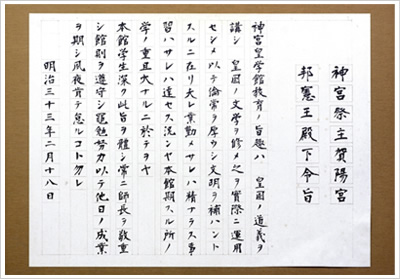 神宮祭主賀陽宮
邦憲王殿下令旨
神宮皇学館教育ノ旨趣ハ 皇国ノ道義ヲ
講シ 皇国ノ文学ヲ修メ之ヲ実際ニ運用
セシメ以テ倫常ヲ厚ウシ文明ヲ補ハント
スルニ在リ夫レ業勤メサレハ精ナラス事
習ハサレハ達セス況ンヤ本館期スル所ノ
学ノ重且大ナルニ於テヲヤ
本館学生深ク此旨ヲ体シ常ニ師長ヲ敬重
シ館則ヲ遵守シ黽勉努力以テ他日ノ成業
ヲ期シ夙夜肯テ怠ルコトクレ
明治三十三年二月十八日